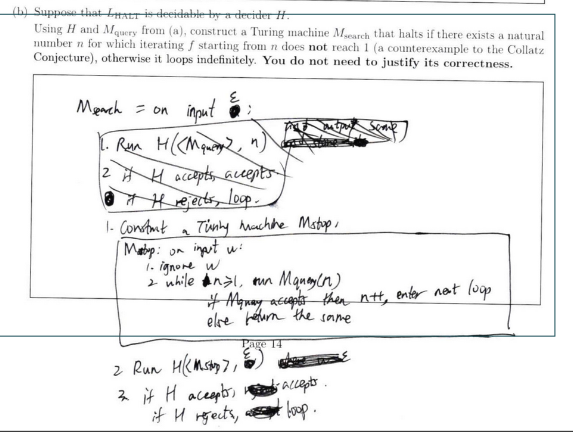 (b) Suppose that L_HALT is decidable by a decider H.
Using H and M_query from (a), construct a Turing machine M_search that halts if there exists a natural
number n for which iterating f starting from n does not reach 1 (a counterexample to the Collatz
Conjecture), otherwise it loops indefinitely. You do not need to justify its correctness.
Msearch = on input ε :
output same
1. Run H(<Mquery>, n)
2 if H accepts, accepts.
if H rejects, loop.
1. Construct a Turing machine Mstop,
Mstop: on input w:
1. ignore w
2 while n≥1, run Mquery(n)
if Mquery accepts then n++, enter next loop
else return the same
Page 14
2 Run H(<Mstop>, ε)
3 if H accepts, accepts.
if H rejects, loop.